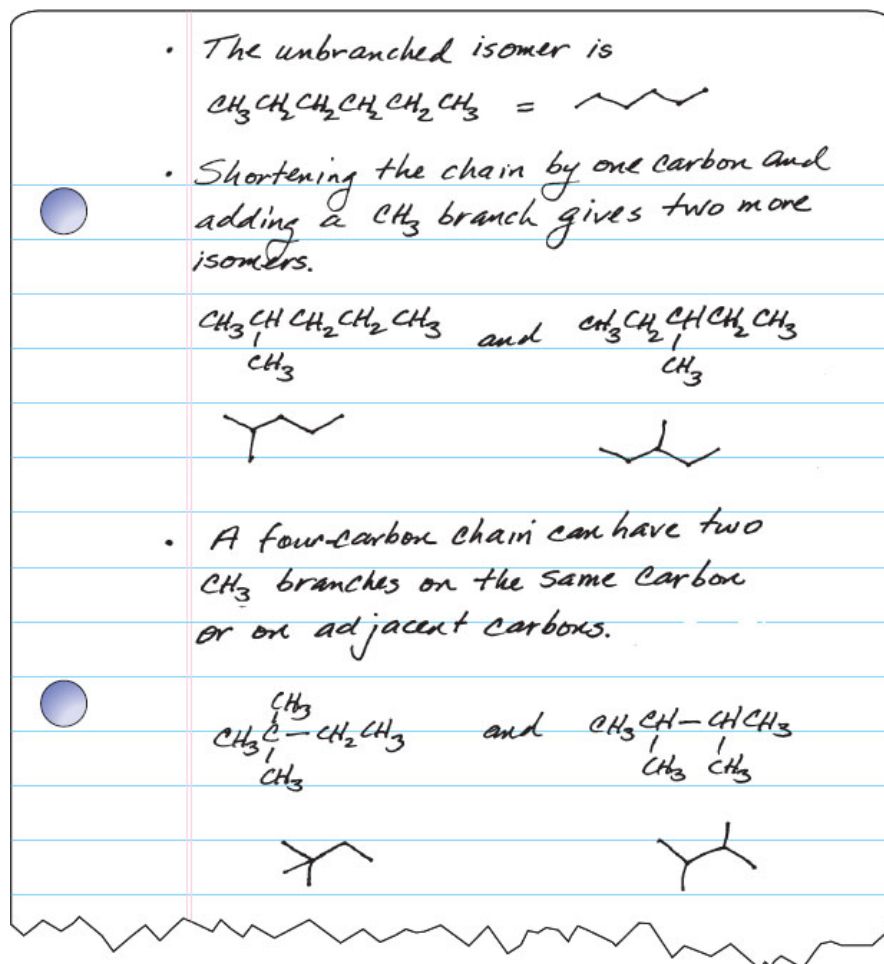 · The unbranched isomer is
CH₃CH₂CH₂CH₂CH₂CH₃ =
· Shortening the chain by one carbon and
adding a CH₃ branch gives two more
isomers.
CH₃CHCH₂CH₂CH₃ and CH₃CH₂CHCH₂CH₃
CH₃ CH₃
· A four-carbon chain can have two
CH₃ branches on the same carbon
or on adjacent carbons.
CH₃
CH₃C—CH₂CH₃ and CH₃CH—CHCH₃
CH₃ CH₃ CH₃